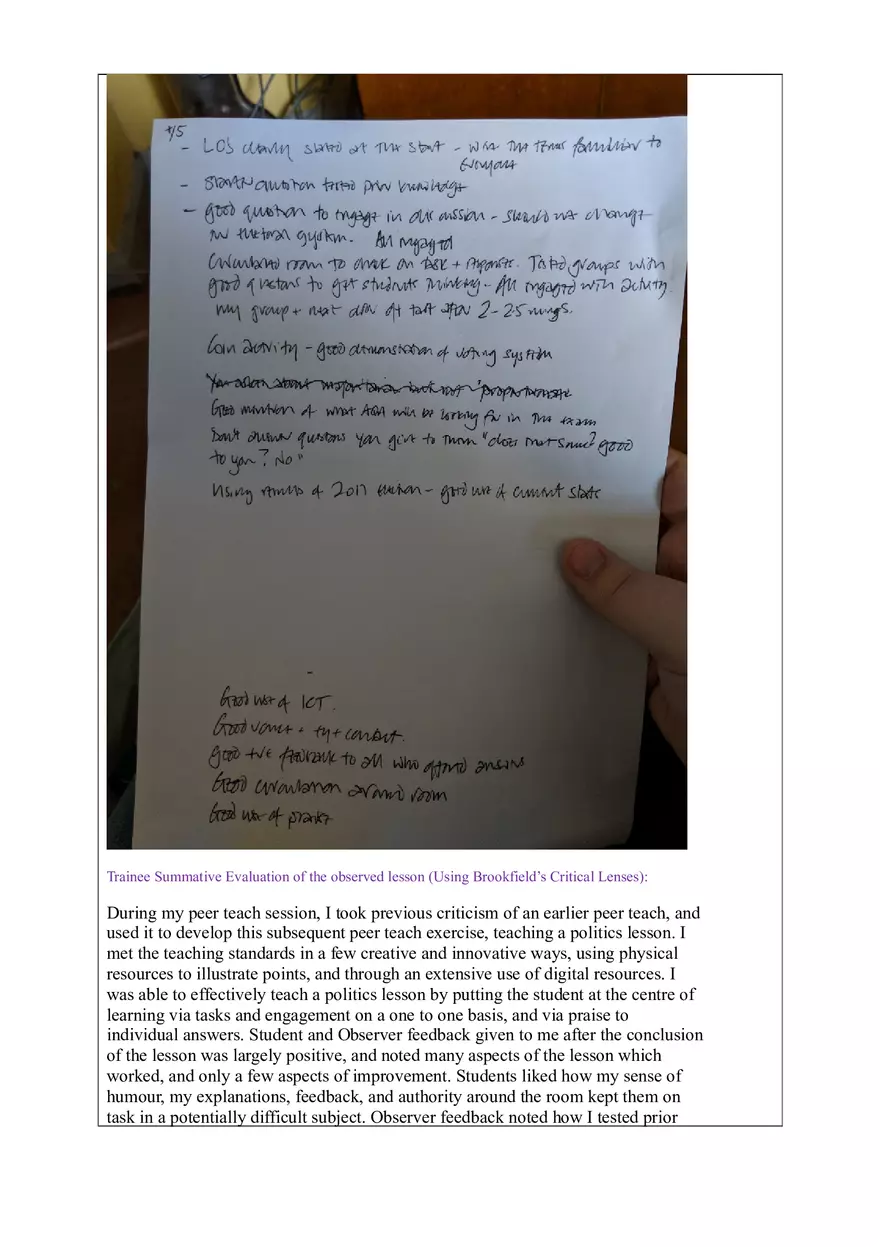 - LOs clearly stated at the start - were the terms familiar to
everyone
- Starter question tested prior knowledge
- good question to engage in discussion - should we change
our electoral system. All engaged
Circulated room to check on task + responses. Tested groups with
good questions to get students thinking - All engaged with activity.
my group + next drew off task after 2-2.5 mins.
Coin activity - good demonstration of voting system
You asked about majoritarian but not "proportionate
Good mention of what AQA will be looking for in the exam
Don't answer questions you give to them "does that sound good
to you? No"
Using results of 2017 election - good use of current stats
Good use of ICT.
Good voice + eye contact.
good +ve feedback to all who offered answers
Good circulation around room
Good use of praise
Trainee Summative Evaluation of the observed lesson (Using Brookfield's Critical Lenses):
During my peer teach session, I took previous criticism of an earlier peer teach, and
used it to develop this subsequent peer teach exercise, teaching a politics lesson. I
met the teaching standards in a few creative and innovative ways, using physical
resources to illustrate points, and through an extensive use of digital resources. I
was able to effectively teach a politics lesson by putting the student at the centre of
learning via tasks and engagement on a one to one basis, and via praise to
individual answers. Student and Observer feedback given to me after the conclusion
of the lesson was largely positive, and noted many aspects of the lesson which
worked, and only a few aspects of improvement. Students liked how my sense of
humour, my explanations, feedback, and authority around the room kept them on
task in a potentially difficult subject. Observer feedback noted how I tested prior